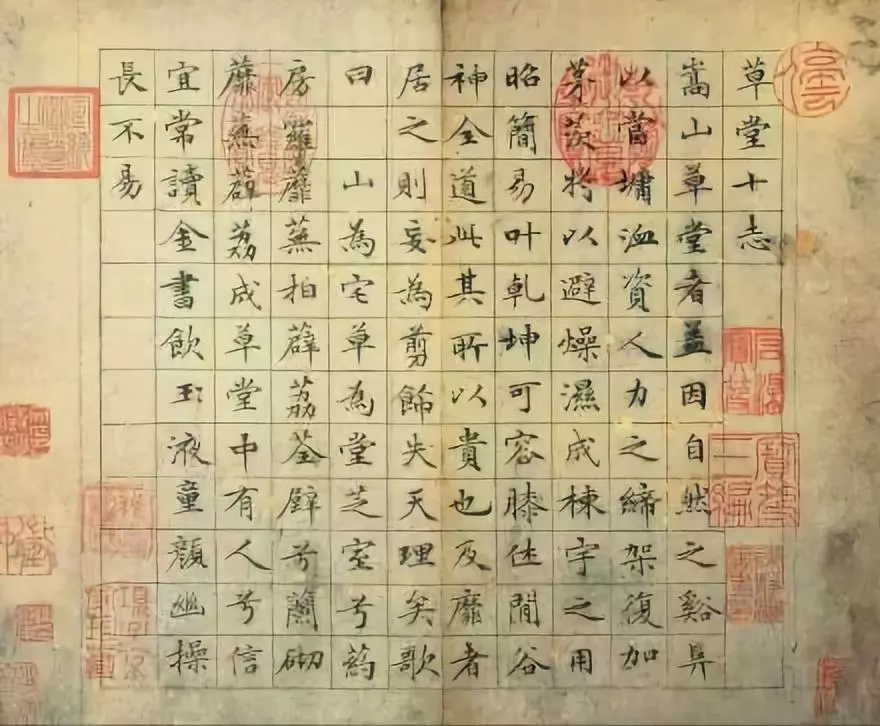 草堂十志
嵩山草堂者盖因自然之谿阜
以當墉洫資人力之締架復加
茅茨將以避燥濕成棟宇之用
昭簡易叶乾坤可容膝休閒谷
神全道此其所以貴也反靡者
居之則妄為剪飾失天理矣歌
曰 山為宅草為堂芝室兮葯
房羅蘼蕪拍薜荔荃壁兮蘭砌
蘼蕪薜荔成草堂中有人兮信
宜常讀金書飲玉液童顏幽操
長不易